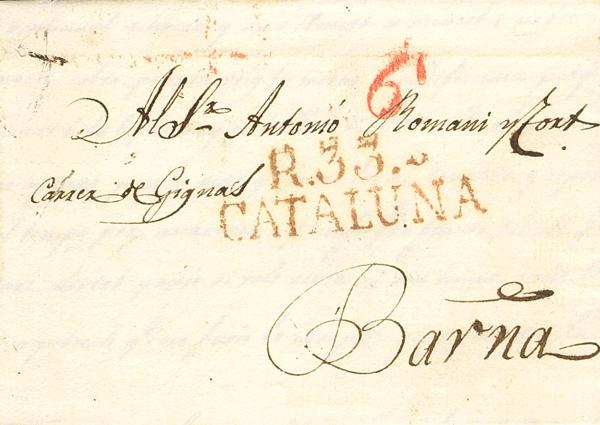 6
Al Sr. Antonio Romani y Tort
R.33.
Carrer de Gignas
CATALUÑA
Barna